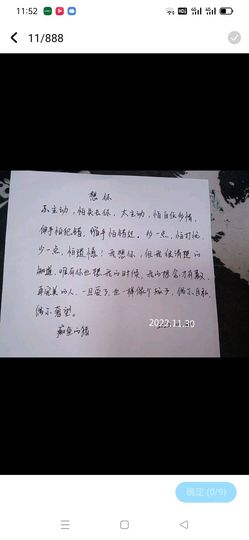 11:52
11/888
想你
不主动，怕失去你，太主动，怕自作多情，
伸手怕犯错，缩手怕错过。多一点，怕打扰，
少一点，怕遗憾！我想你，但我很清楚的
知道，唯有你也想我的时候，我的想念才有意义，
再完美的人，一旦爱了，也一样像个孩子，偶尔自私，
偶尔
2022.11.30
的猪
确定 (0/9)